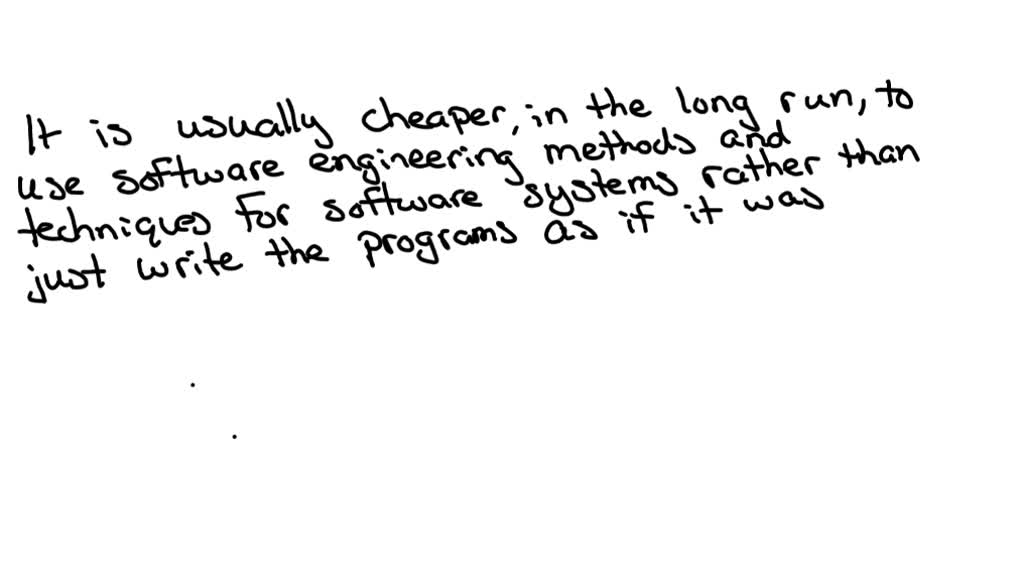 It is usually cheaper, in the long run, to
use software engineering methods and
techniques for software systems rather than
just write the programs as if it was